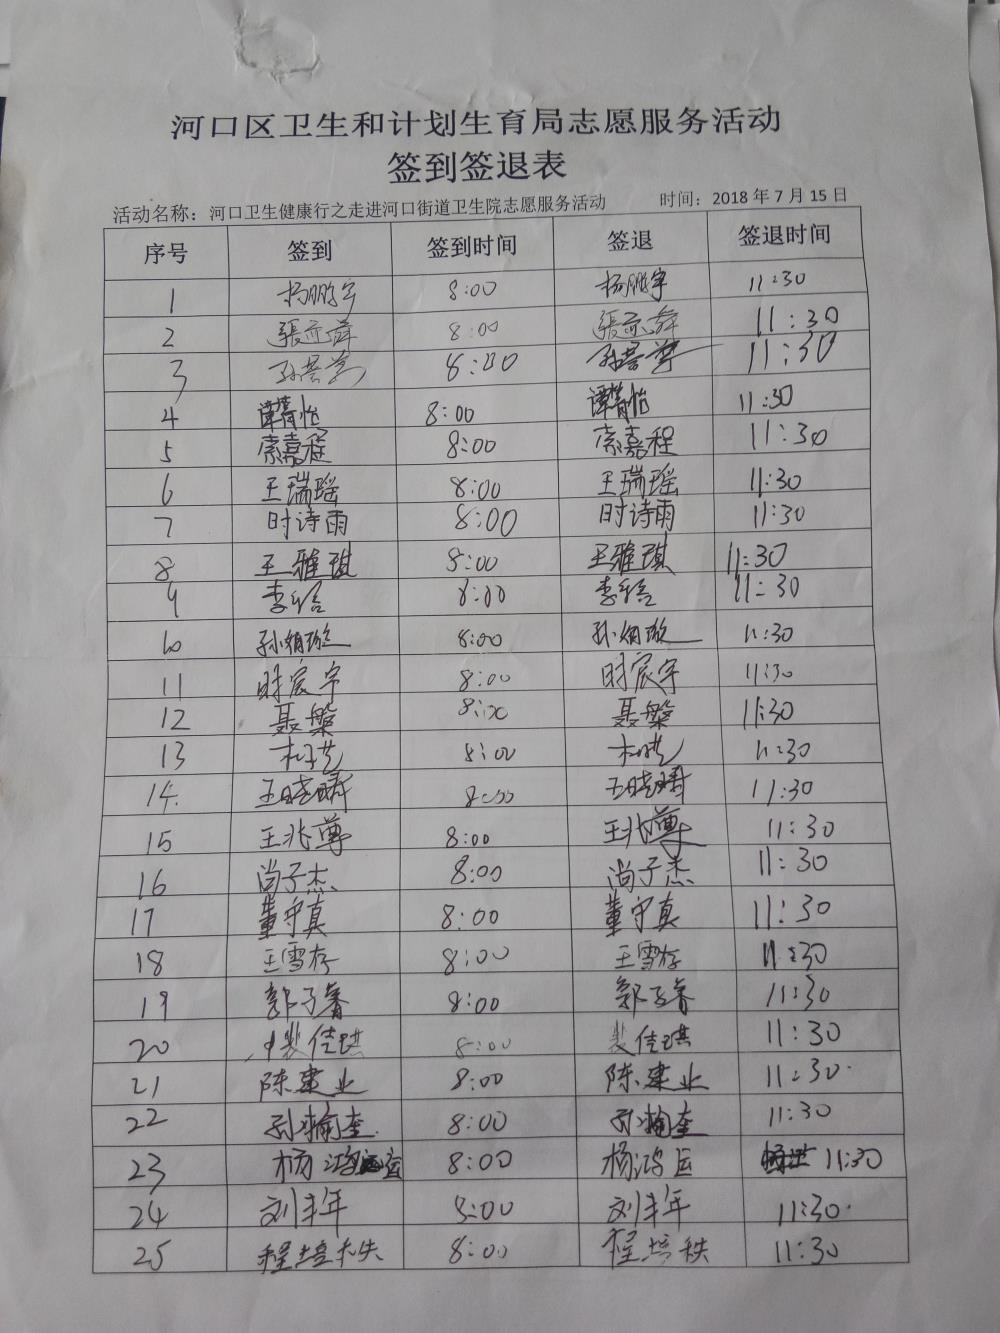 河口区卫生和计划生育局志愿服务活动
签到签退表
活动名称：河口卫生健康行之走进河口街道卫生院志愿服务活动 时间：2018年7月15日
序号 签到 签到时间 签退 签退时间
1 杨鹏宇 8:00 杨鹏宇 11:30
2 張亦舜 8:00 張亦舜 11:30
3 8:00 11:30
4 谭菁怡 8:00 谭菁怡 11:30
5 索嘉程 8:00 索嘉程 11:30
6 王瑞瑶 8:00 王瑞瑶 11:30
7 时诗雨 8:00 时诗雨 11:30
8 王雅琪 8:00 王雅琪 11:30
9 8:00 11:30
10 8:00 11:30
11 时宸宇 8:00 时宸宇 11:30
12 聂槃 8:00 聂槃 11:30
13 8:00 11:30
14. 王晓晴 8:00 王晓晴 11:30
15 王兆尊 8:00 王兆尊 11:30
16 尚子杰 8:00 尚子杰 11:30
17 董守真 8:00 董守真 11:30
18 王雪存 8:00 王雪存 11:30
19 郭子睿 8:00 郭子睿 11:30
20 裴佳琪 8:00 裴佳琪 11:30
21 陈建业 8:00 陈建业 11:30
22 孙翰奎 8:00 孙翰奎 11:30
23 杨鸿运 8:00 杨鸿运 11:30
24 刘丰年 8:00 刘丰年 11:30
25 程培秩 8:00 程培秩 11:30